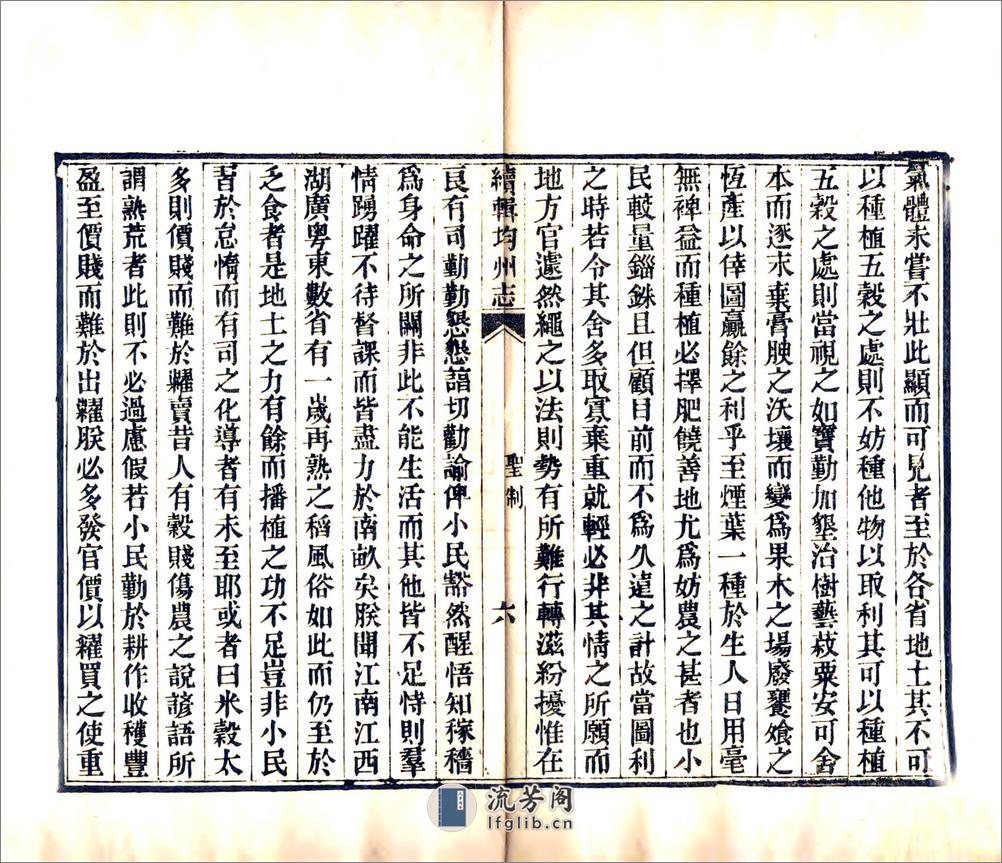 氣體未嘗不壯此顯而可見者至於各省地土其不可
以種植五穀之處則不妨種他物以取利其可以種植
五穀之處則當視之如寶勤加墾治樹藝菽粟安可舍
本而逐末棄膏腴之沃壤而變為果木之場廢饔飧之
恆產以倖圖贏餘之利乎至煙葉一種於生人日用毫
無裨益而種植必擇肥饒善地尤為妨農之甚者也小
民較量錙銖且但顧目前而不為久遠之計故當圖利
之時若令其舍多取寡棄重就輕必非其情之所願而
地方官遽然繩之以法則勢有所難行轉滋紛擾惟在
續輯均州志
聖制
六
良有司勤勤懇懇諳切勸諭俾小民豁然醒悟知稼穡
為身命之所關非此不能生活而其他皆不足恃則羣
情踴躍不待督課而皆盡力於南畝矣朕聞江南江西
湖廣粵東數省有一歲再熟之稻風俗如此而仍至於
乏食者是地土之力有餘而播植之功不足豈非小民
習於怠惰而有司之化導者有未至耶或者曰米穀太
多則價賤而難於糶賣昔人有穀賤傷農之說諺語所
謂熟荒者此則不必過慮假若小民勤於耕作收穫豐
盈至價賤而難於出糶朕必多發官價以糴買之使重
流芳阁
lfglib.cn